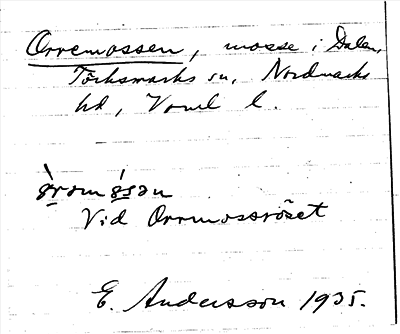 Orremossen, mosse i Dalen,
Töcksmarks sn, Nordmarks
hd, Värml l.
òrømósən
Vid Orrmossröset
E. Andersson 1935.